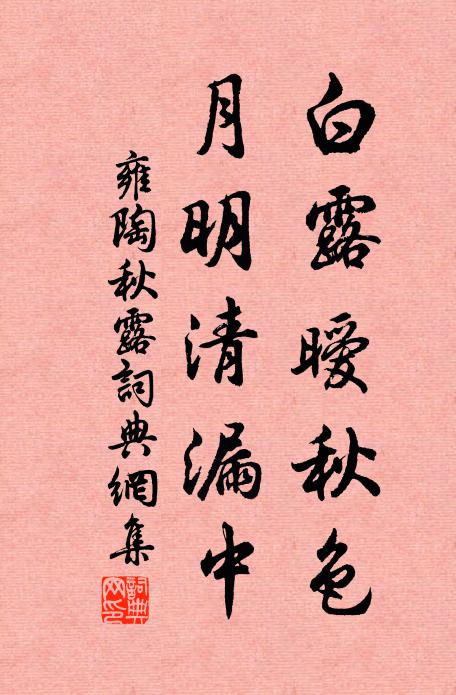 白露曖秋色
月明清漏中
雍陶秋露詞典網集
詞典網印